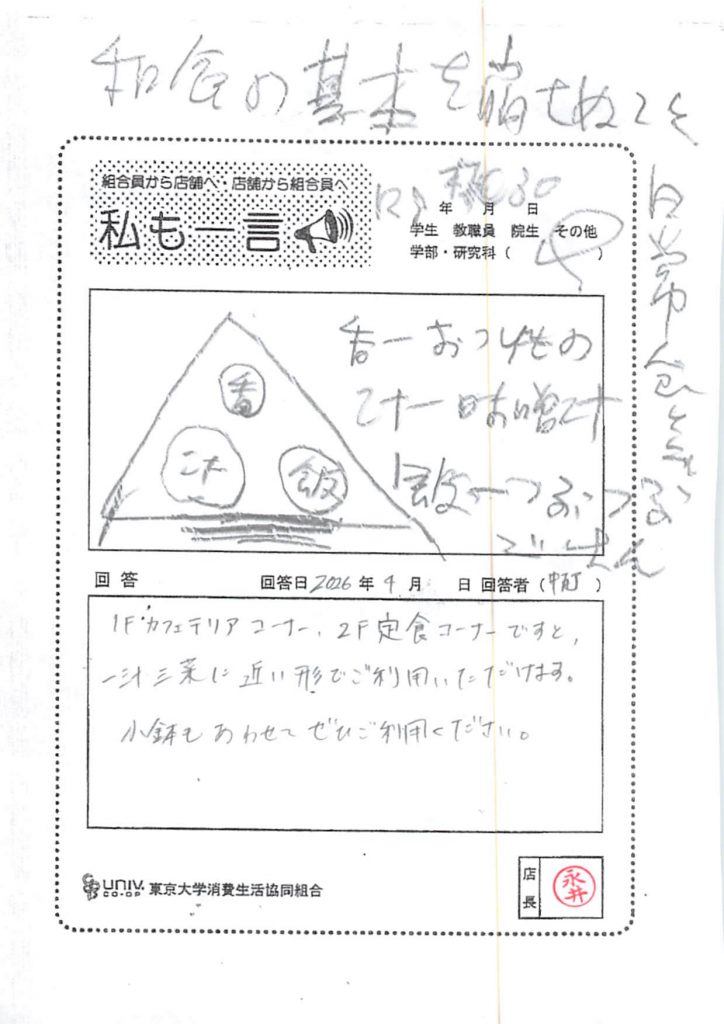 和食の基本を崩せぬこそ
日常
組合員から店舗へ・店舗から組合員へ
私も一言
年 月 日
学生 教職員 院生 その他
学部・研究科（ ）
香
汁
飯
香ーおつけもの
汁ー味噌汁
飯ーつぶつぶ
ごはん
回答
回答日2026年4月 日 回答者（ ）
1F・カフェテリアコーナー、2F定食コーナーですと、
一汁三菜に近い形でご利用いただけます。
小鉢もあわせてぜひご利用ください。
UNIV. CO-OP 東京大学消費生活協同組合
店長
永井